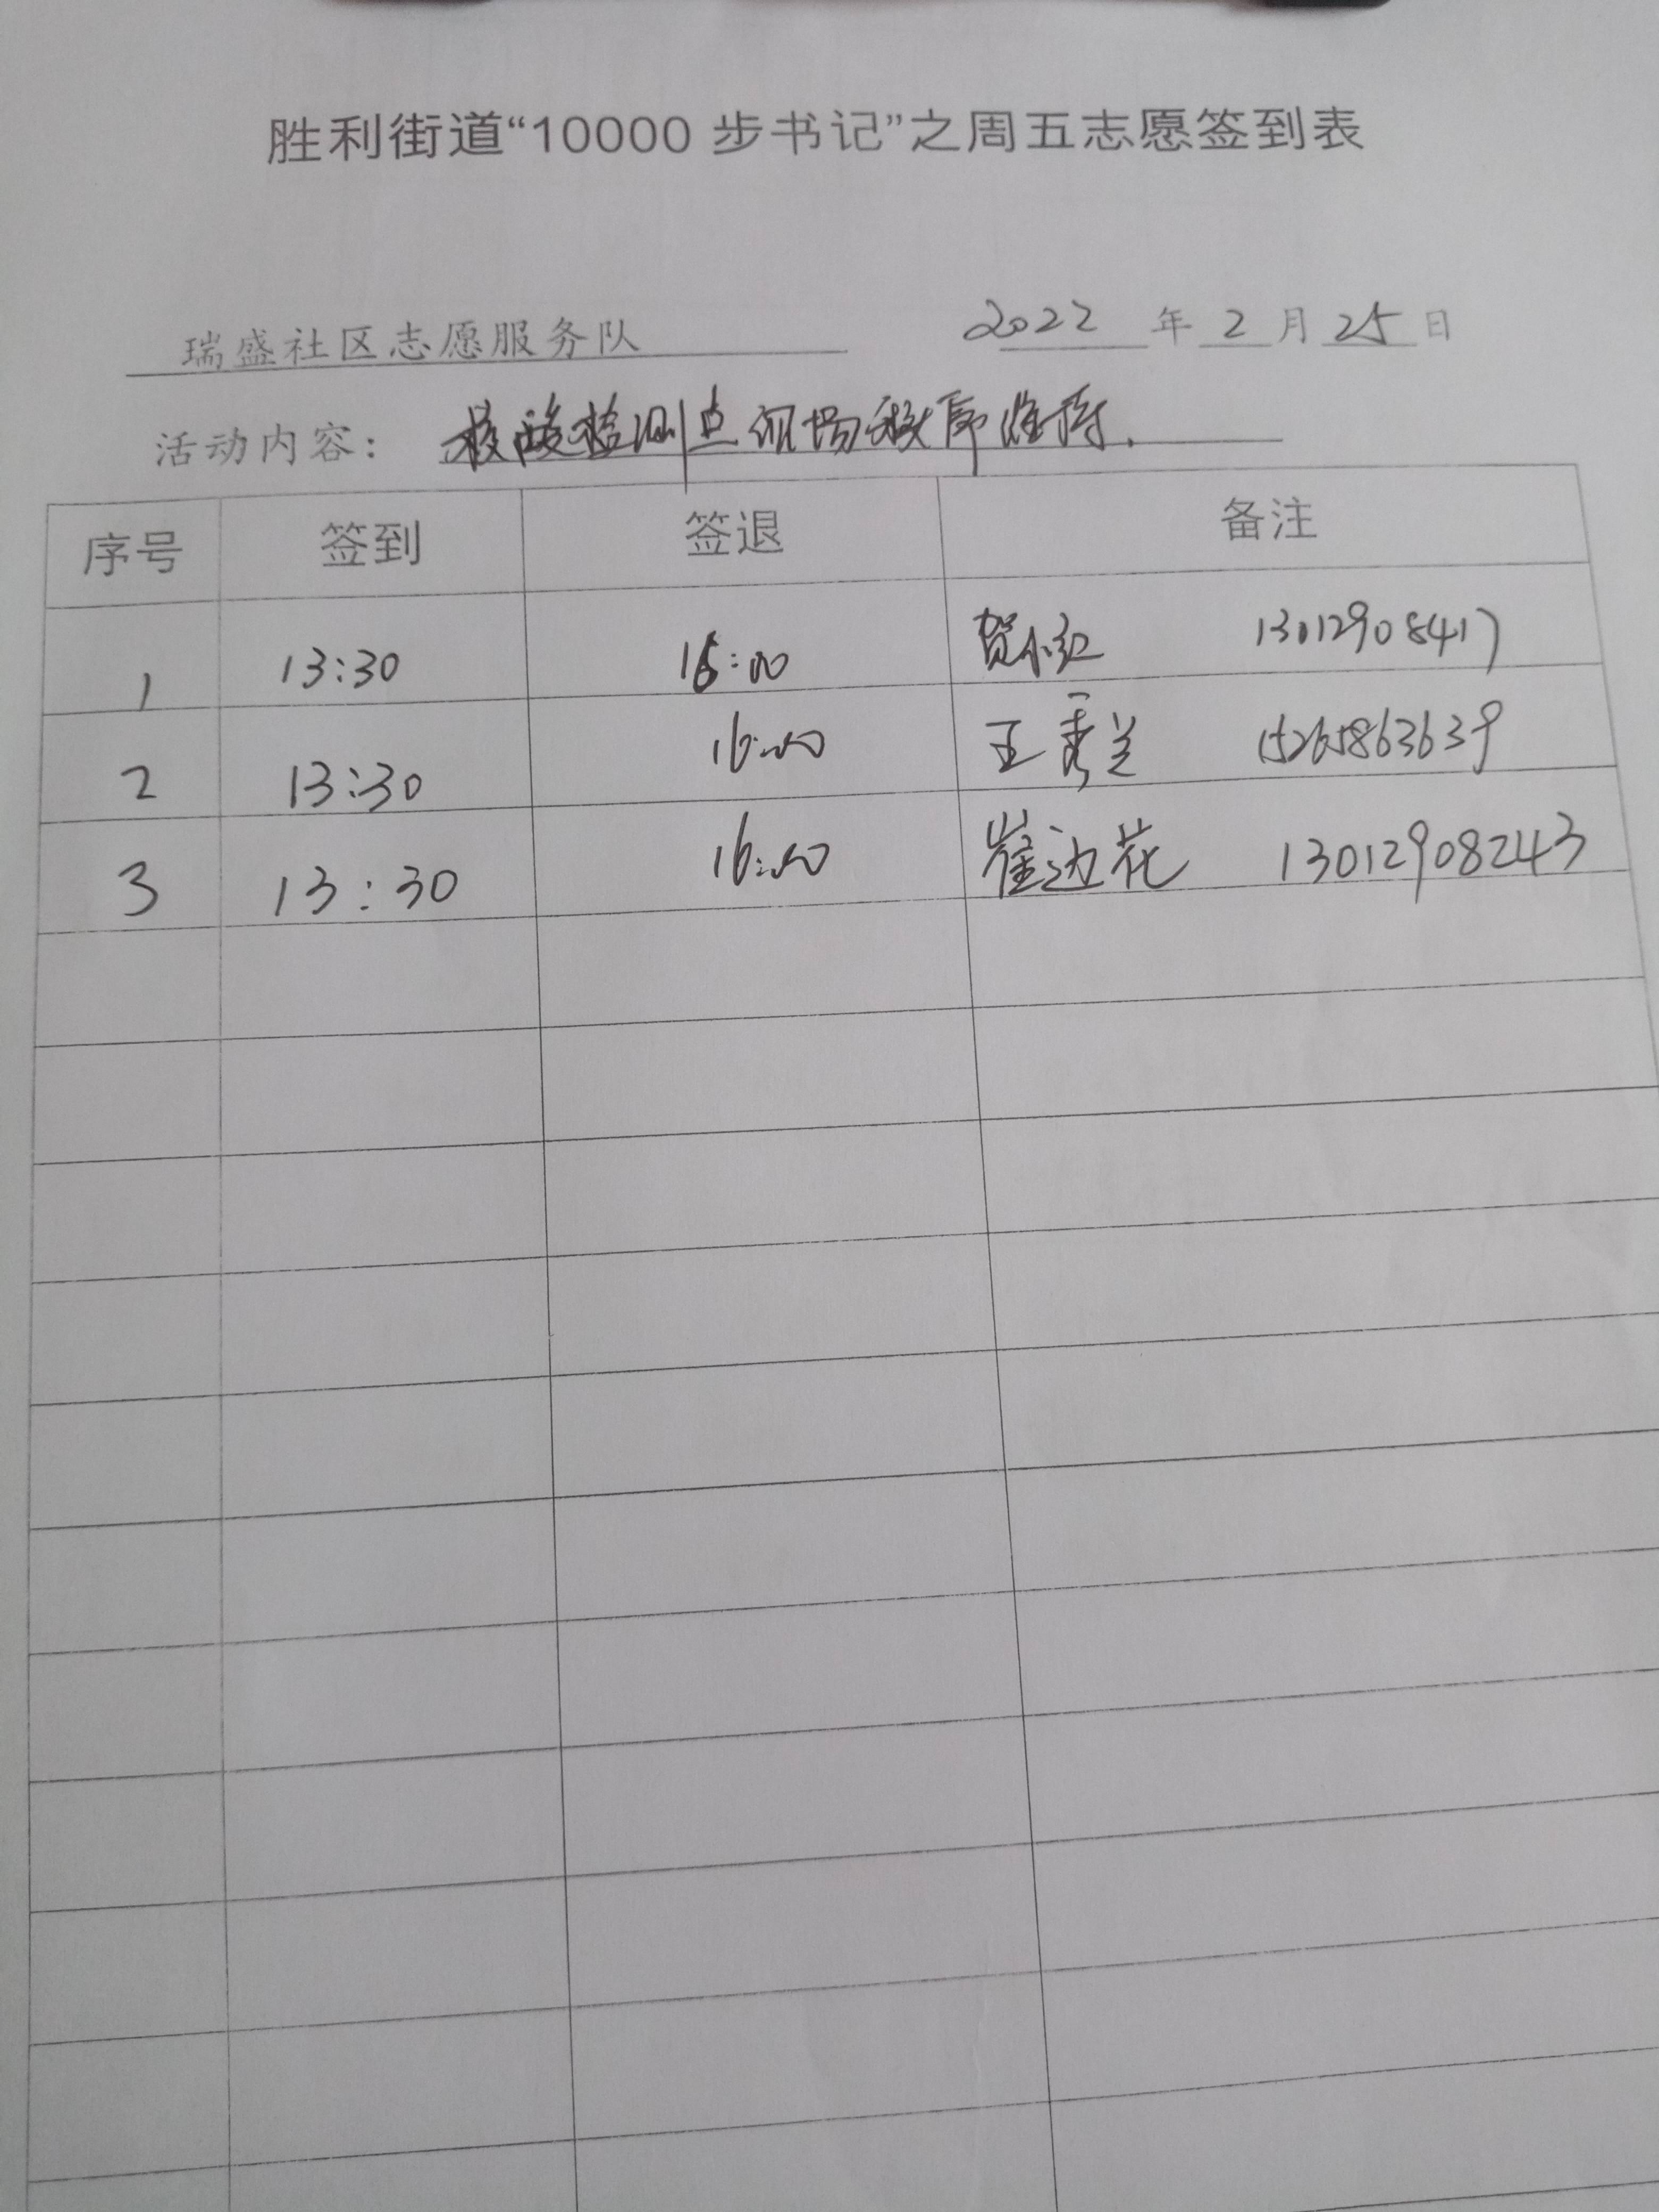 胜利街道“10000 步书记”之周五志愿签到表
瑞盛社区志愿服务队 2022 年 2 月 25 日
活动内容： 核酸检测点现场秩序维持.
序号 签到 签退 备注
1 13:30 16:00 贺小红 13012908417
2 13:30 16:00 王秀兰 15265863639
3 13:30 16:00 崔边花 13012908243